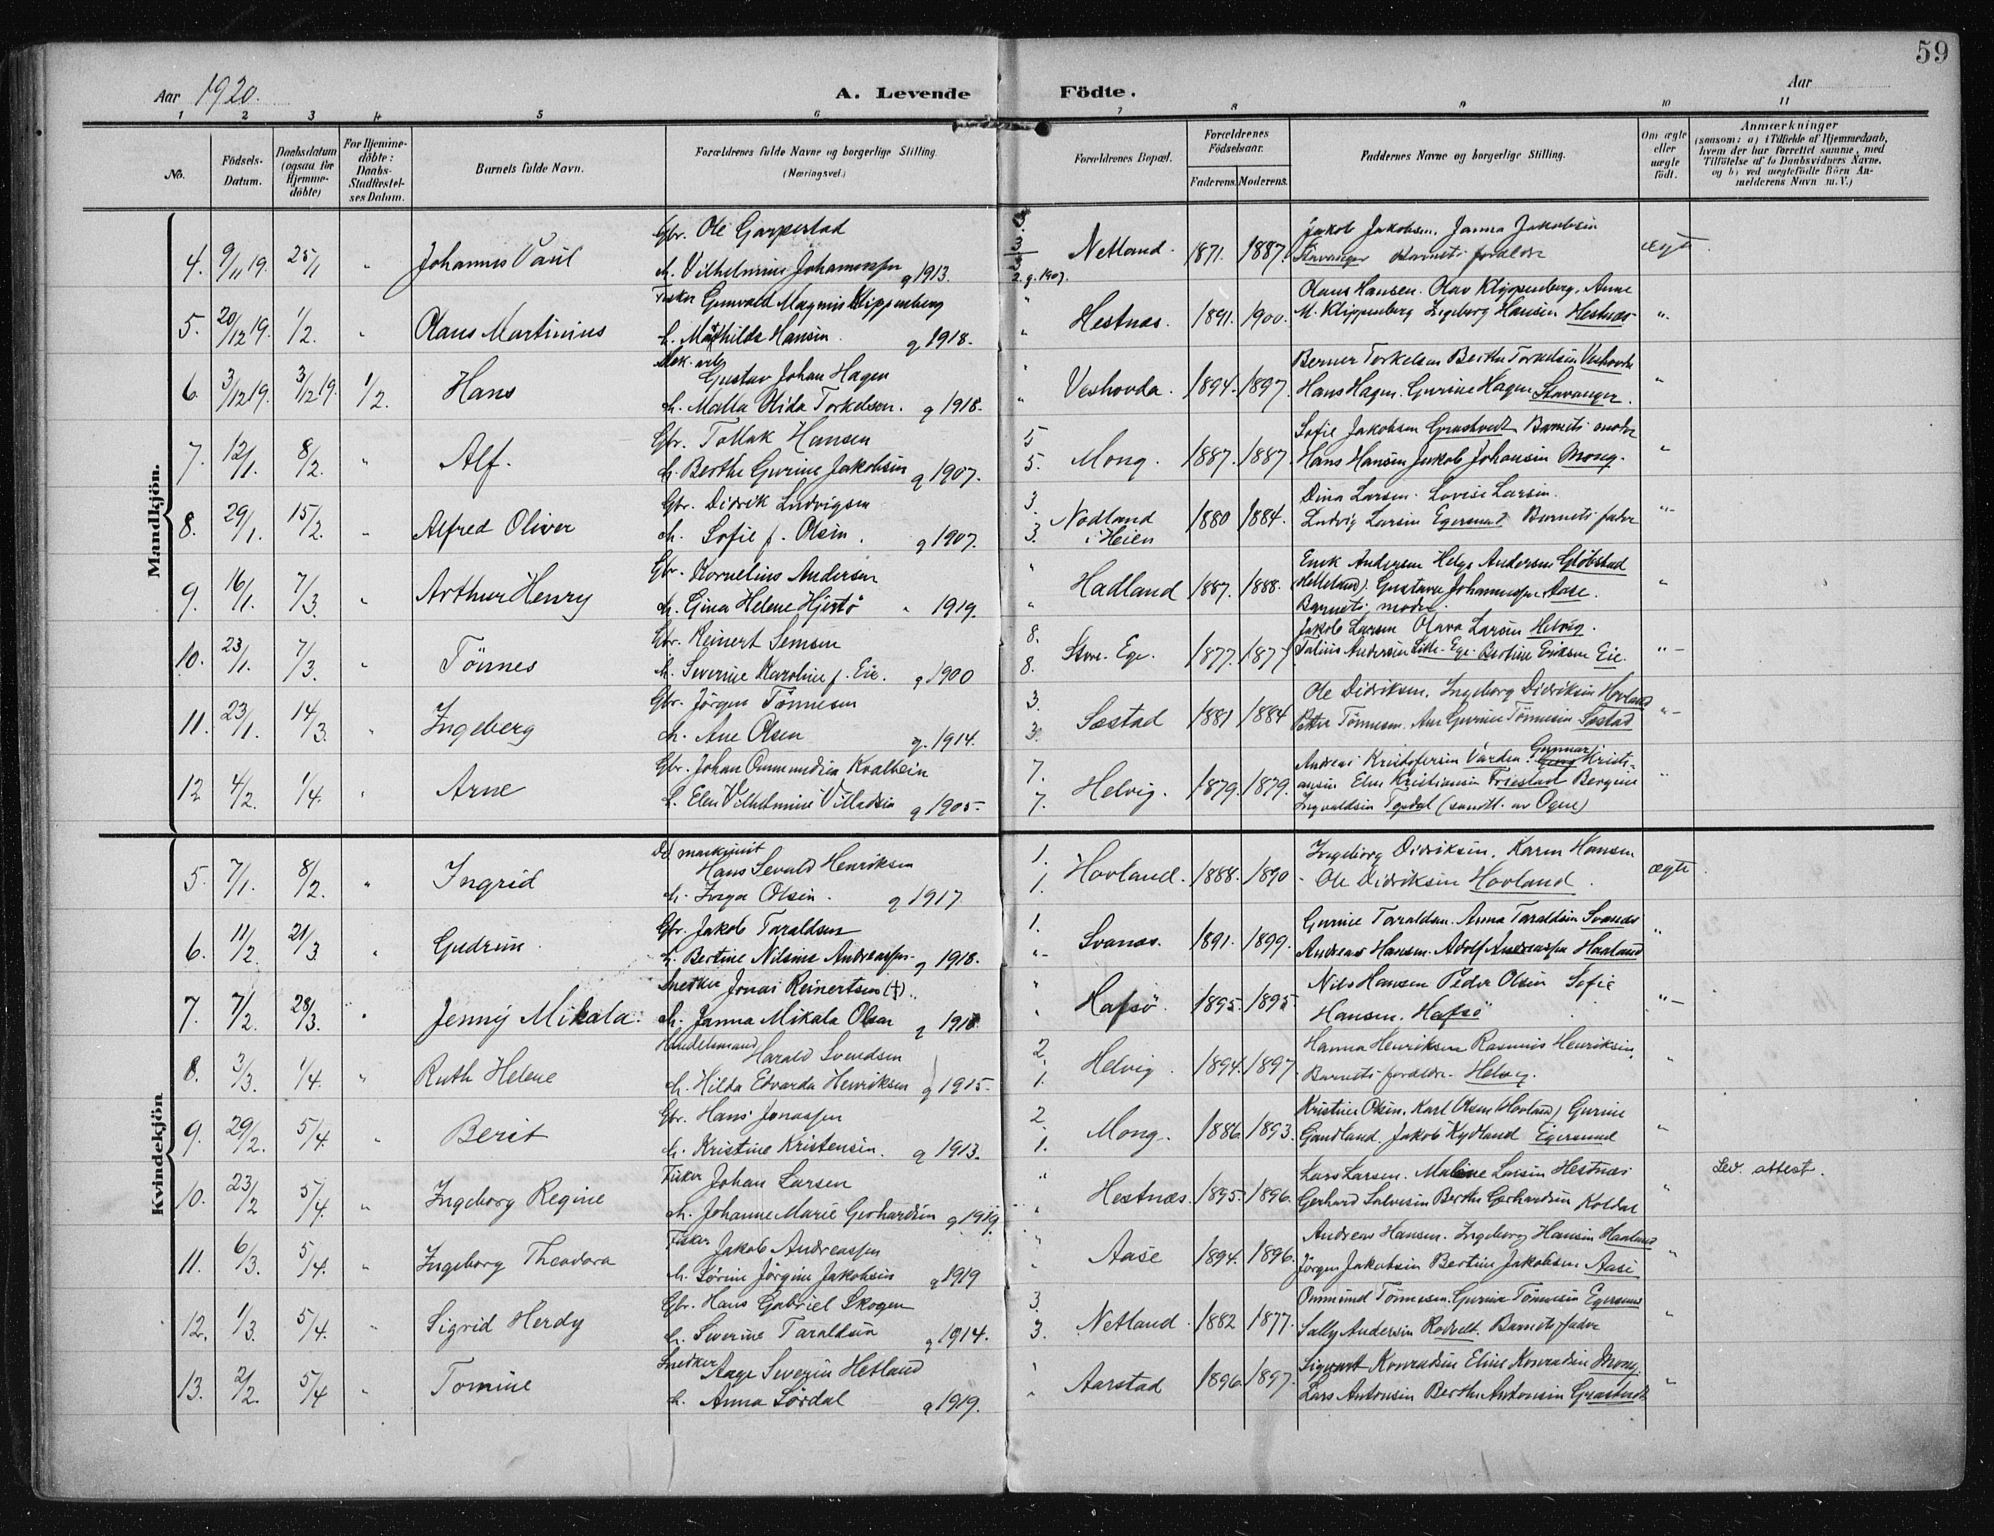 59
Aar 1920.
A. Levende Födte.
Aar
1 2 3 4 5 6 7 8 9 10 11
No.
Födsels-Datum.
Daabsdatum (ogsaa for Hjemme-döbte)
For Hjemme-döbte: Daabs-Stadfæstel-ses Datum.
Barnets fulde Navn.
Forældrenes fulde Navne og borgerlige Stilling. (Næringsvei.)
Forældrenes Bopæl.
Forældrenes Födselsaar.
Faderens. Moderens.
Faddernes Navne og borgerlige Stilling.
Om ægte eller uægte födt.
Anmærkninger
(saasom: a) i Tilfælde af Hjemmedaab,
hvem der har forrettet samme, med
Tilföielse af to Daabsvidners Navne,
og b) ved uægtefödte Börn An-
melderens Navn m. V.)
Mandkjön.
4. 9/11 19. 25/1 " Johannes Paul
Gbr. Ole Garpestad
h. Vilhelmine Johannessen g 1913.
3 2. g. 1907.
Netland. 1871. 1887
Jakob Jakobsen. Janna Jakobsen
Stavanger Barnets foraldre
ægte
5. 20/12 19. 1/2. " Olaus Martinius
Fisker Gunvald Magnus Klippenberg
h. Mathilde Hansen. g 1918.
" Hestnes. 1891. 1900.
Olaus Hansen. Olav Klippenberg. Anne
M. Klippenberg Ingeborg Hansen Hestnes
"
6. 3/12 19. 3/12 19. 1/2. Hans
Gustav Johan Hagen
h. Malla Olida Torkelsen. g 1918.
" Veshovda. 1894. 1897.
Berner Torkelsen Berthe Torkelsen Veshovda
Hans Hagen. Gurine Hagen Stavanger.
"
7. 12/1. 8/2. " Alf.
Gbr. Tollak Hansen
h. Berthe Gurine Jakobsen g 1907.
5 5. Mong. 1887. 1887.
Sofie Jakobsen Grastveit Barnets moder
Hans Hansen Jakob Johansen Mong.
"
8. 29/1. 15/2. " Alfred Oliver
Gbr. Didrik Ludvigsen
h. Sofie f. Olsen. g 1907.
3. 3. Nodland i Heien 1880 1884.
Dina Larsen. Lovise Larsen.
Ludvig Larsen Egersund Barnets fader
"
9. 16/1. 7/3. " Arthur Henry
Gbr. Kornelius Andersen
h. Gina Helene Hjertö " 1919.
" Hadland 1887. 1888.
Enok Andersen Helge Andersen Glöbstad
(Helleland). Gustava Johannessen Aase.
Barnets moder.
"
10. 23/1. 7/3. " Tönnes
Gbr. Reinert Semsen
h. Severine Karoline f. Eie. g 1900
8. 8. Store Ege. 1877. 1877
Jakob Larsen Olava Larsen Helvig.
Andersen Lille Ege. Bertine Eriksen Eie.
"
11. 23/1. 14/3. " Ingeberg
Gbr. Jörgen Tönnesen
h. Ane Olsen g. 1914.
3. 3. Sæstad 1881 1884
Ole Didriksen. Ingeborg Didriksen Hovland
Petter Tönnesen. Ane Gurine Tönnesen Sæstad
"
12 4/2. 1/4. " Arne
Gbr. Johan Ommundsen Kvalbein
h. Elen Vilhelmine Villadsen g 1905
7. 7. Helvig. 1879. 1879.
Andreas Kristofersen Varden. Gunnar Kristi-
ansen Else Kristiansen Friestad Bergine
Ingvaldsen Topdal (samtl. av Ogne)
"
Kvindekjön
5. 7/1. 8/2. " Ingrid
Hans Sevald Henriksen
h. Inga Olsen. g 1917
1. 1. Hovland. 1888. 1890
Ingeborg Didriksen. Karen Hansen
Ole Didriksen Hovland.
ægte
6. 11/2. 21/3. " Gudrun.
Gbr. Jakob Taraldsen
h. Bertine Nilsine Andreassen. g 1918.
1. Svanes. 1891. 1899.
Gurine Taraldsen. Anna Taraldsen Svanes
Andreas Hansen. Adolf Andreassen Haaland
"
7. 7/2. 28/3. " Jenny Mikala.
Snedker Jonas Reinertsen (†).
h. Janna Mikala Olsen g 1918.
" Hafsö 1895. 1895
Nils Hansen Peder Olsen Sofie
Hansen. Hafsö
"
8. 3/3. 1/4. " Ruth Helene
Handelsmand Harald Svendsen
h. Hilda Edvarda Henriksen g 1915.
2. 1. Helvig. 1894. 1897.
Hanna Henriksen Rasmus Henriksen.
Barnets foraldre. Helvig.
"
9. 29/2. 5/4. " Berit
Gbr. Hans Jonassen
h. Kristine Kristensen. g 1913.
2. 1. Mong. 1886. 1893.
Kristine Olsen. Karl Olsen (Hovland) Gurine
Gandland. Jakob Kydland Egersund
"
10. 23/2 5/4. " Ingeborg Regine
Fisker Johan Larsen
h. Johanne Marie Gerhardsen g 1919.
" Hestnæs. 1895. 1896.
Lars Larsen. Malene Larsen Hestnæs
Gerhard Salvesen Berthe Gerhardsen Koldal
"
Lev. attest.
11. 6/3. 5/4. " Ingeborg Theodora
Fisker Jakob Andreassen
h. Sörine Jörgine Jakobsen g 1919
" Aase 1894. 1896.
Andreas Hansen. Ingeborg Hansen Haaland
Jörgen Jakobsen Bertine Jakobsen Aase
"
12. 1/3. 5/4. " Sigrid Herdy
Gbr. Hans Gabriel Skogen
h. Severine Taraldsen g 1914.
3. 3. Netland. 1882 1877.
Ommund Tönnesen. Gurine Tönnesen Egersund
Sally Andersen Rodvelt. Barnets fader
"
13. 2/2. 5/4 " Tomine
Snedker Aage Severin Hetland
h. Anna Sördal g 1919.
" Aarstad 1896. 1897.
Sigvart Konradsen Eline Konradsen Mong.
Lars Antonsen Berthe Antonsen Grastveit
"